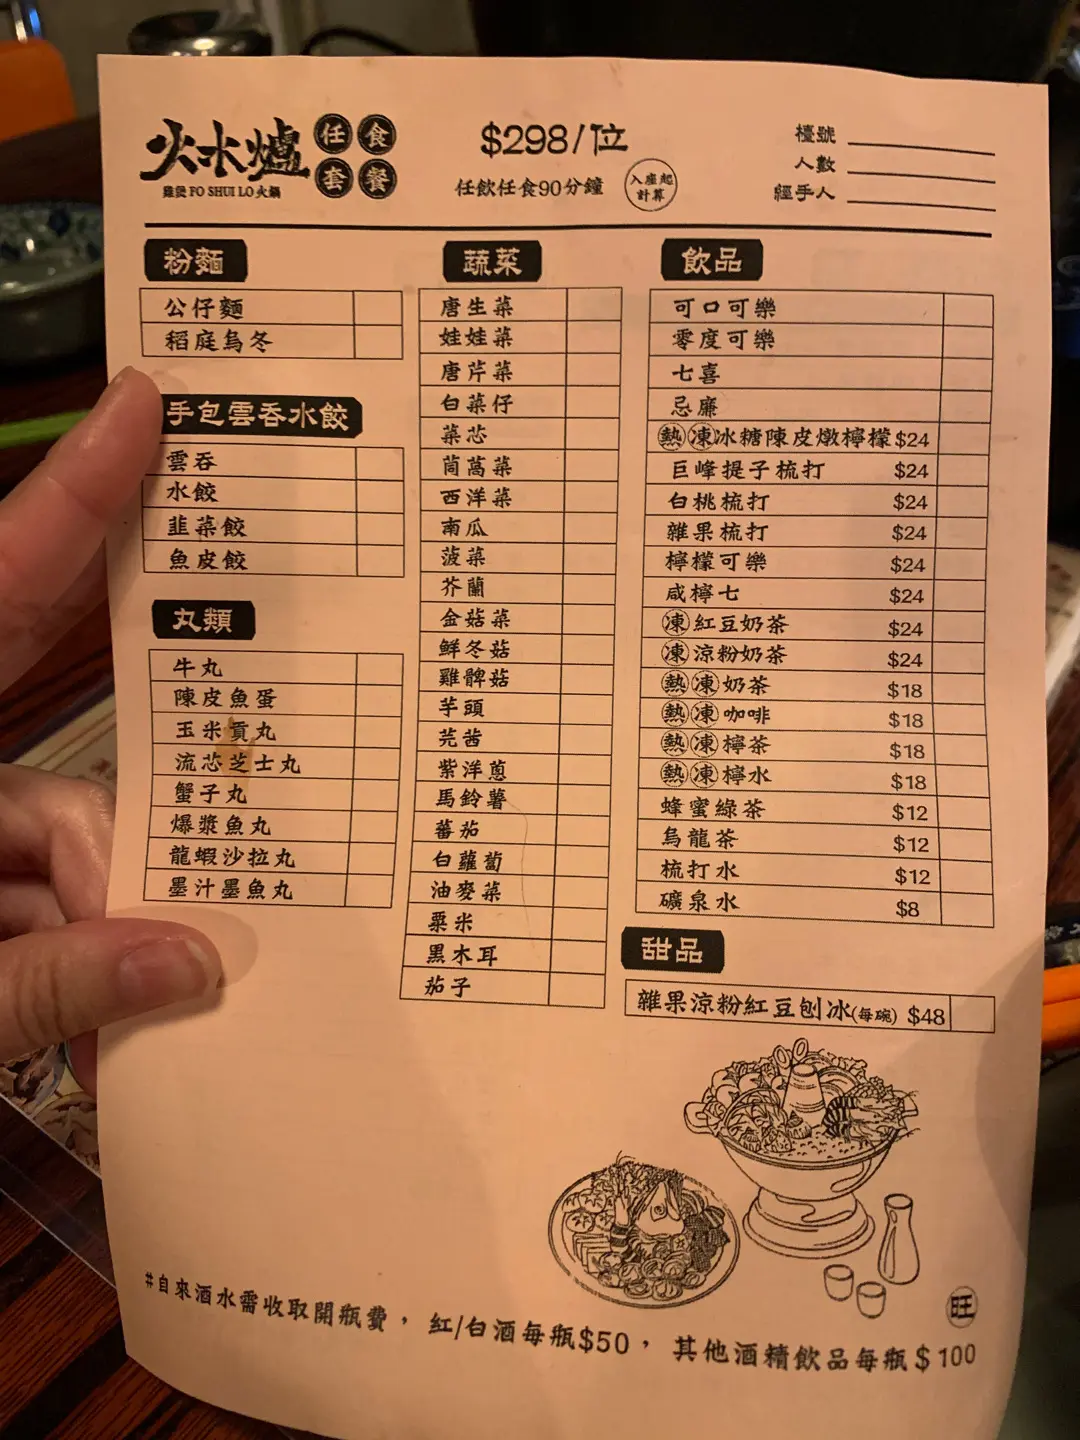 火水爐
任食
套餐
雞煲 FO SHUI LO 火鍋
$298/位
任飲任食90分鐘
入座起
計算
檯號
人數
經手人
粉麵
公仔麵
稻庭烏冬
手包雲吞水餃
雲吞
水餃
韭菜餃
魚皮餃
丸類
牛丸
陳皮魚蛋
玉米貢丸
流芯芝士丸
蟹子丸
爆漿魚丸
龍蝦沙拉丸
墨汁墨魚丸
蔬菜
唐生菜
娃娃菜
唐芹菜
白菜仔
菜芯
茼蒿菜
西洋菜
南瓜
菠菜
芥蘭
金菇菜
鮮冬菇
雞髀菇
芋頭
芫茜
紫洋蔥
馬鈴薯
蕃茄
白蘿蔔
油麥菜
粟米
黑木耳
茄子
飲品
可口可樂
零度可樂
七喜
忌廉
熱凍冰糖陳皮燉檸檬 $24
巨峰提子梳打 $24
白桃梳打 $24
雜果梳打 $24
檸檬可樂 $24
咸檸七 $24
凍紅豆奶茶 $24
凍涼粉奶茶 $24
熱凍奶茶 $18
熱凍咖啡 $18
熱凍檸茶 $18
熱凍檸水 $18
蜂蜜綠茶 $12
烏龍茶 $12
梳打水 $12
礦泉水 $8
甜品
雜果涼粉紅豆刨冰(每碗) $48
旺
#自來酒水需收取開瓶費，紅/白酒每瓶$50，其他酒精飲品每瓶$100